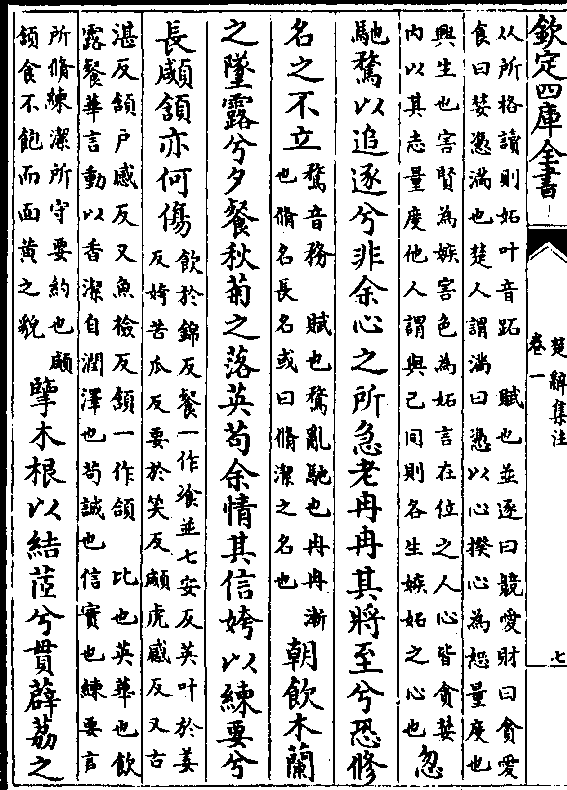 欽定四庫全書
楚辭集注
卷一
七
从所格讀則妬叶音跖　賦也並逐曰競愛財曰貪愛
食曰婪憑滿也楚人謂滿曰憑以心揆心為恕量度也
興生也害賢為嫉害色為妬言在位之人心皆貪婪
内以其志量度他人謂與己同則各生嫉妬之心也
忽
馳騖以追逐兮非余心之所急老冉冉其將至兮恐修
名之不立
騖音務　賦也騖亂馳也冉冉漸
也脩名長名或曰脩潔之名也
朝飲木蘭
之墜露兮夕餐秋菊之落英苟余情其信姱以練要兮
長顑頷亦何傷
飲於錦反餐一作飡並七安反英叶於姜
反姱苦瓜反要於笑反顑虎感反又古
湛反頷戶感反又魚檢反頷一作頜　比也英華也飲
露餐華言動以香潔自潤澤也苟誠也信實也練要言
所脩練潔所守要約也顑
頷食不飽而面黄之貌
擥木根以結茝兮貫薜荔之